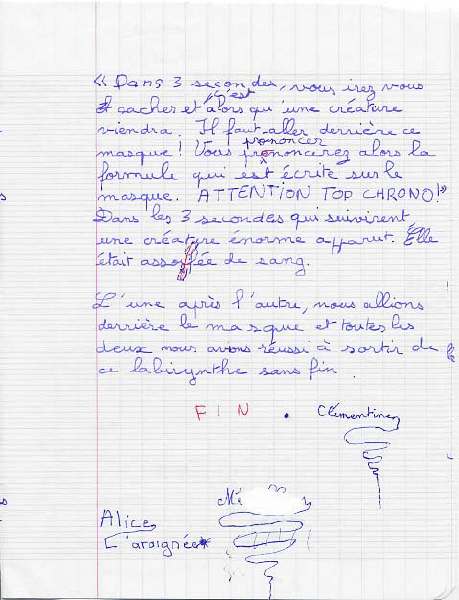 « Dans 3 secondes, vous irez vous
cacher et c'est alors qu'une créature
viendra. Il faut aller derrière ce
masque ! Vous prononcerez alors la
prononcer
formule qui est écrite sur le
masque. ATTENTION TOP CHRONO !»
Dans les 3 secondes qui suivirent
une créature énorme apparut. Elle
était assoiffée de sang.
L'une après l'autre, nous allions
derrière le masque et toutes les
deux nous avons réussi à sortir de
ce labirynthe sans fin.
FIN. Clémentine
Alice
L'araignée